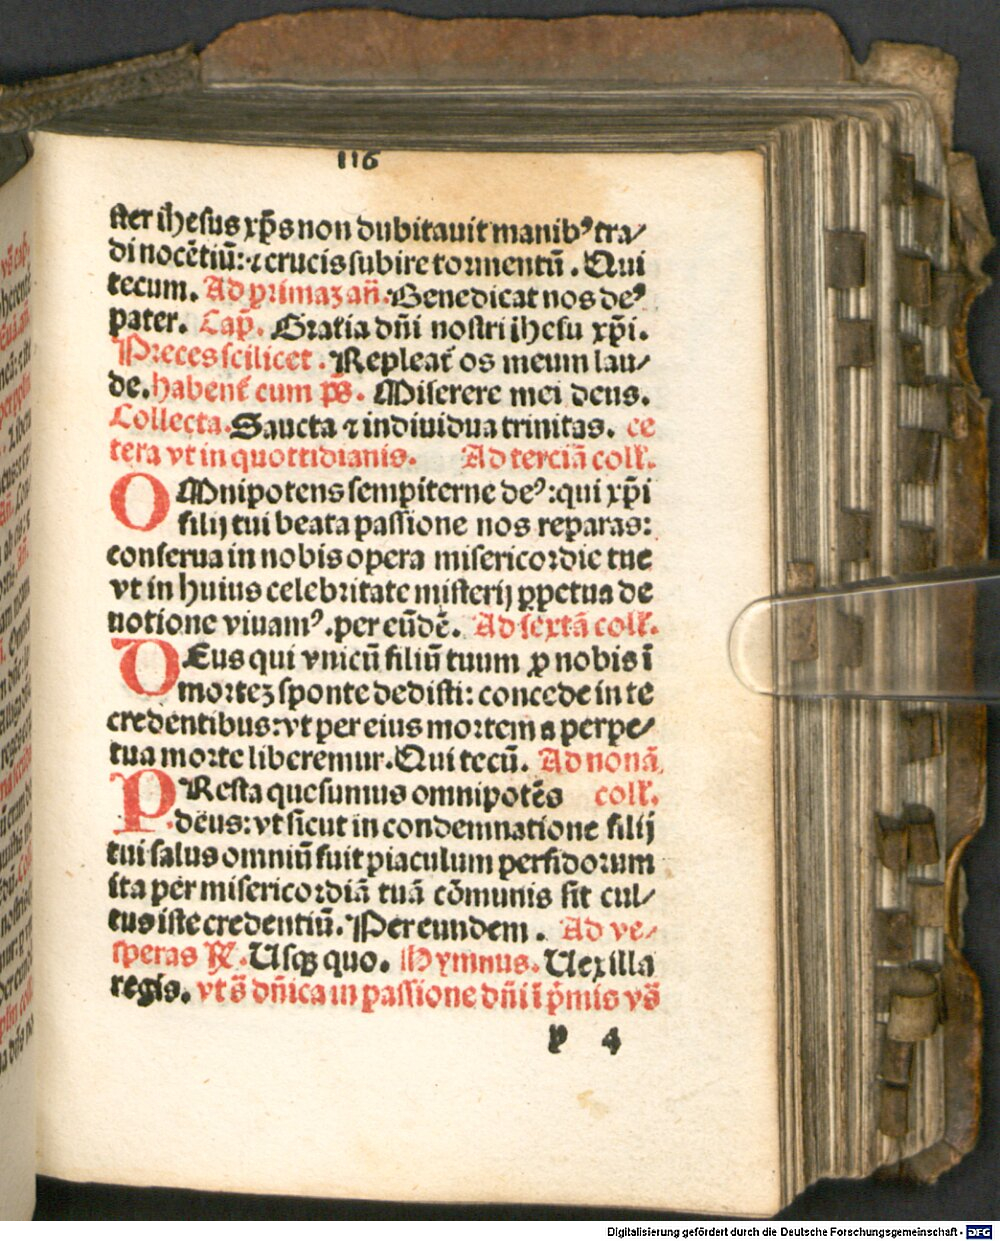 116
ster ihesus xp̄s non dubitauit manibꝰ tra/
di nocētiū: ⁊ crucis subire tormentū. Qui
tecum. Ad primaꝫ añ. Benedicat nos deꝰ
pater. Cap̄. Gratia dñi nostri ihesu xp̄i.
Preces scilicet. Repleat̄ os meum lau/
de. habent̄ cum p̄s. Miserere mei deus.
Collecta. Sancta ⁊ indiuidua trinitas. ce
tera vt in quottidianis. Ad terciā coll̄.
OMnipotens sempiterne deꝰ: qui xp̄i
filij tui beata passione nos reparas:
conserua in nobis opera misericordie tue
vt in huius celebritate misterij ꝑpetua de
uotione viuamꝰ. per eūdē. Ad sextā coll̄.
DEus qui vnicū filiū tuum ꝓ nobis ī
morteꝫ sponte dedisti: concede in te
credentibus: vt per eius mortem a perpe/
tua morte liberemur. Qui tecū. Ad nonā
PResta quesumus omnipotēs coll̄.
deus: vt sicut in condemnatione filij
tui salus omniū fuit piaculum perfidorum
ita per misericordiā tuā cōmunis fit cul/
tus iste credentiū. Per eundem. Ad ve/
speras ℟. Usqꝫ quo. Hymnus. Uexilla
regis. vt s̄ dñica in passione dñi ī p̄mis vs̄
y 4
Digitalisierung gefördert durch die Deutsche Forschungsgemeinschaft - DFG